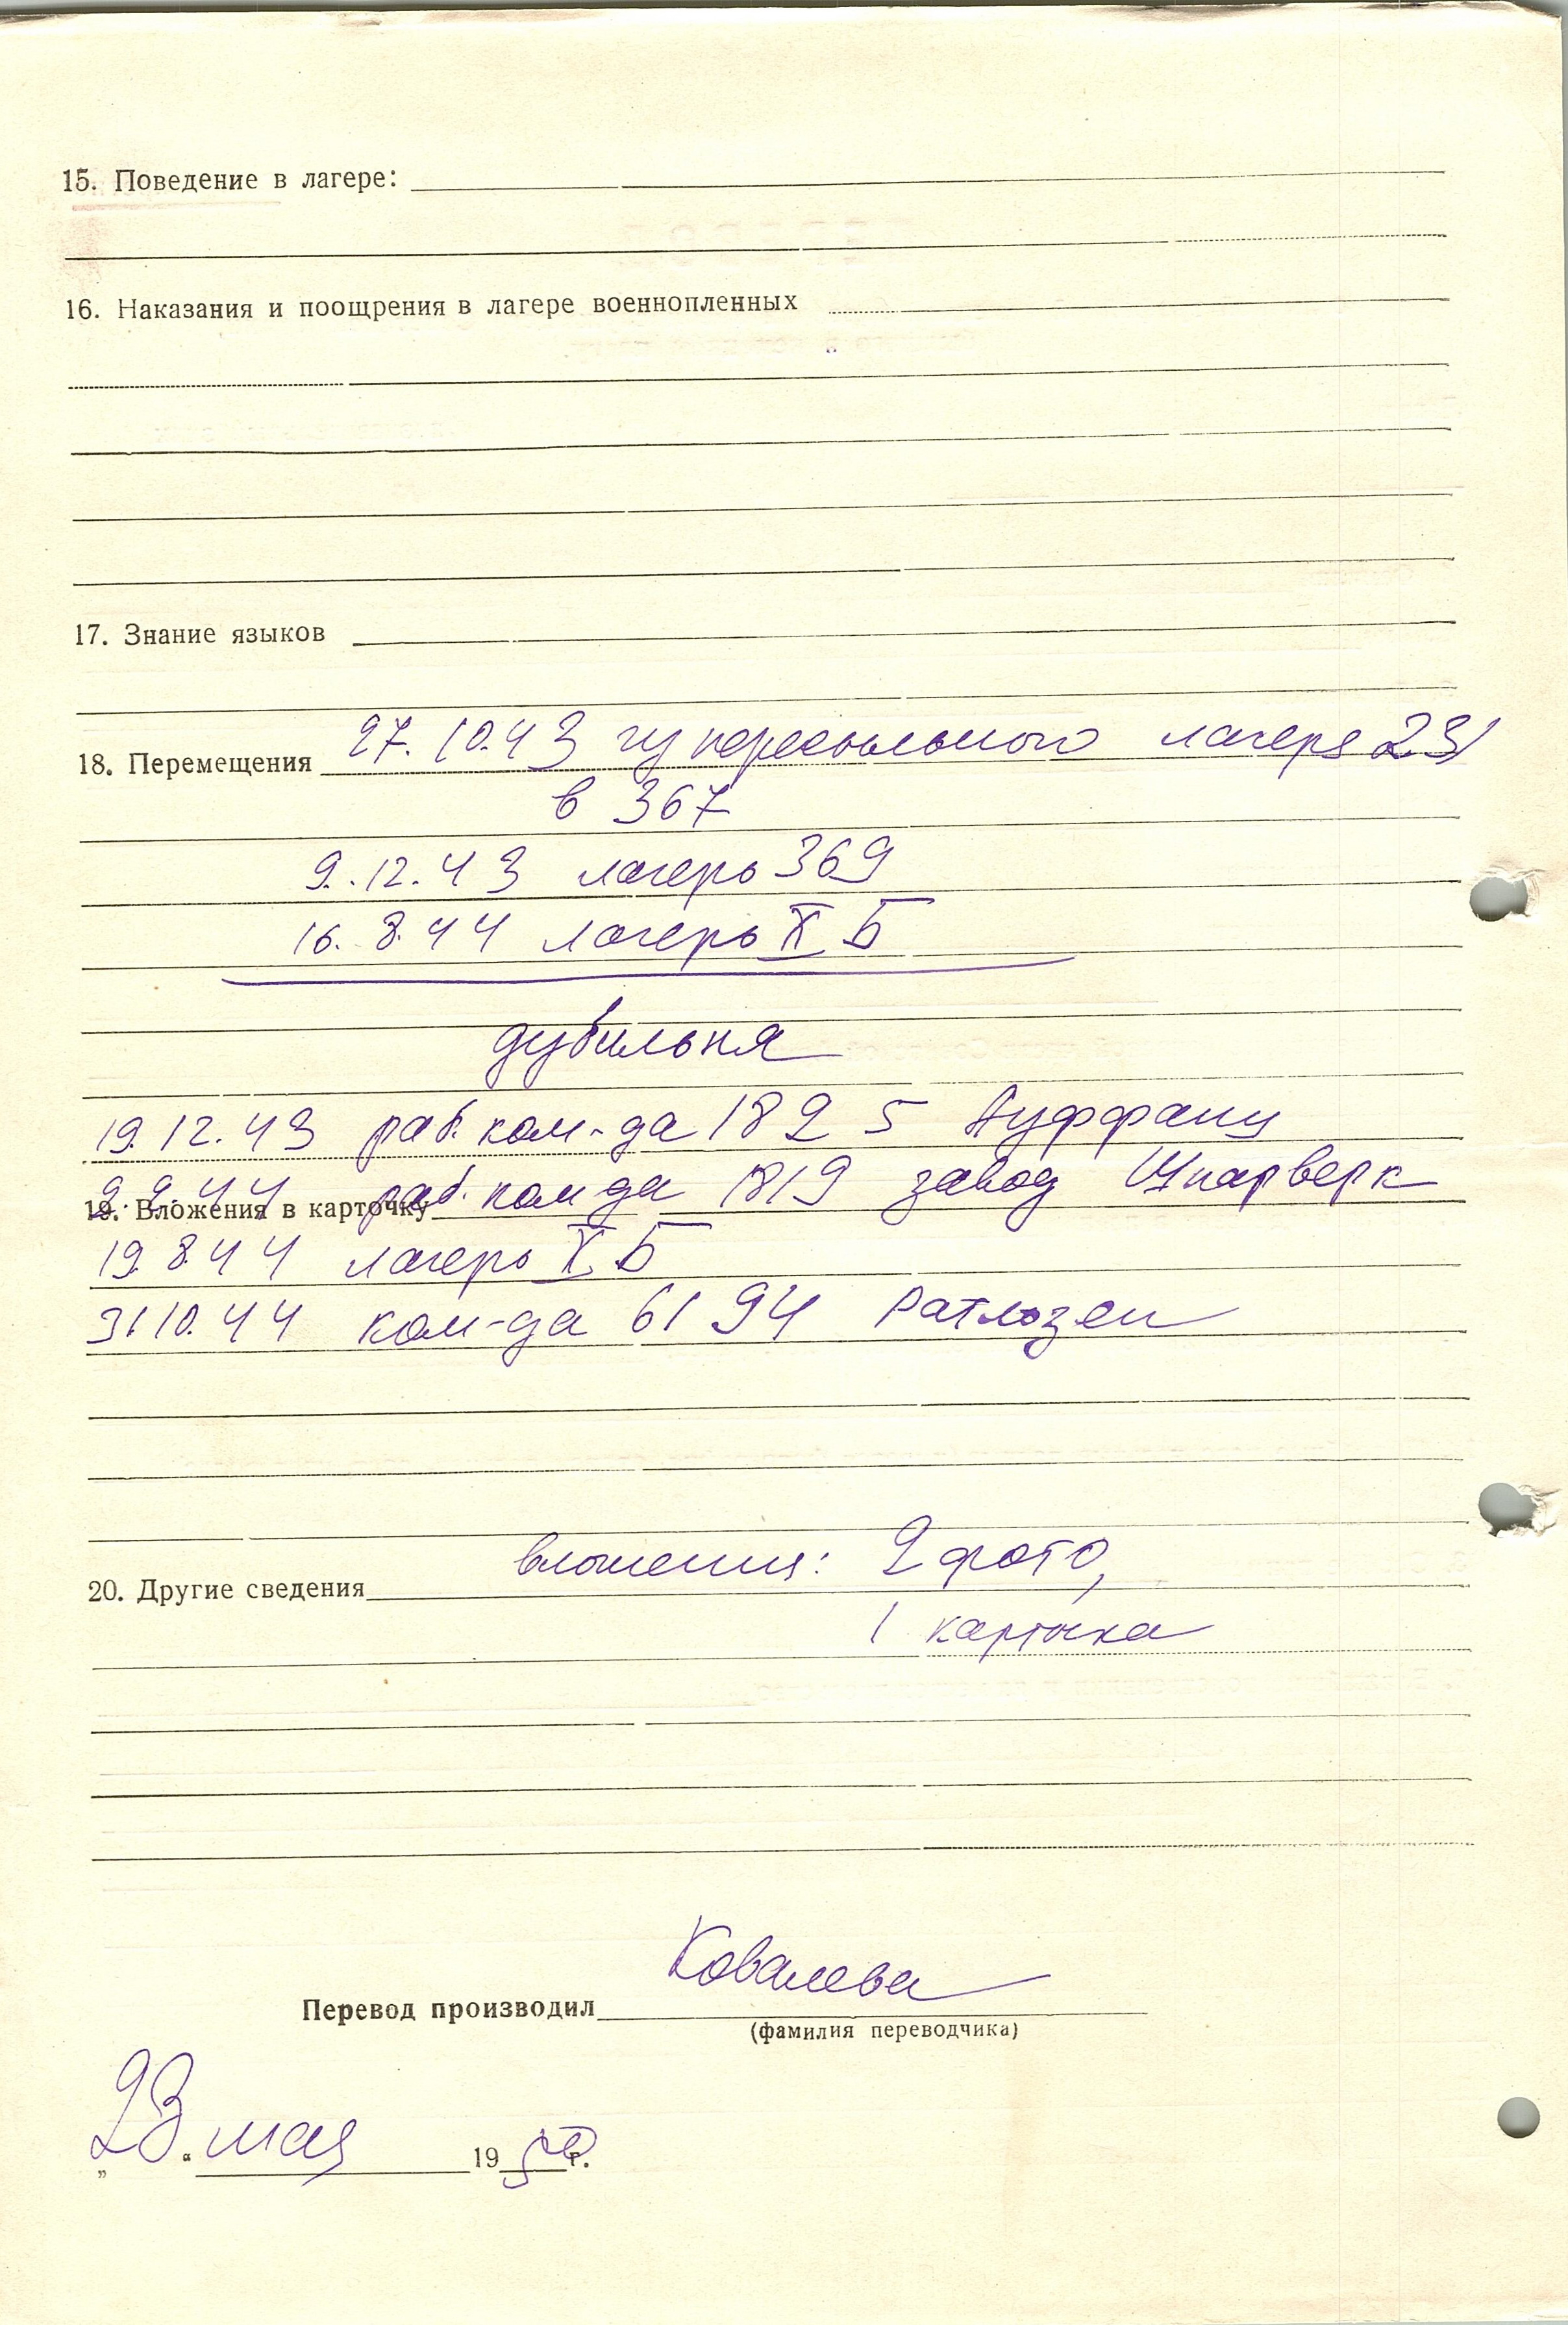 15. Поведение в лагере:
16. Наказания и поощрения в лагере военнопленных
17. Знание языков
18. Перемещения 27.10.43 из пересыльного лагеря 231
в 367
9.12.43 лагерь 369
16.8.44 лагерь X Б
дубильня
19.12.43 раб. ком-да 1825 Ауффанг
9.2.44 раб. комда 1819 завод
19. Вложения в карточку
19.8.44 лагерь X Б
31.10.44 ком-да 6194 Ратлозен
вложения: 2 фото,
20. Другие сведения
1 карточка
Ковалева
Перевод производил
(фамилия переводчика)
„23“ мая 1950 г.